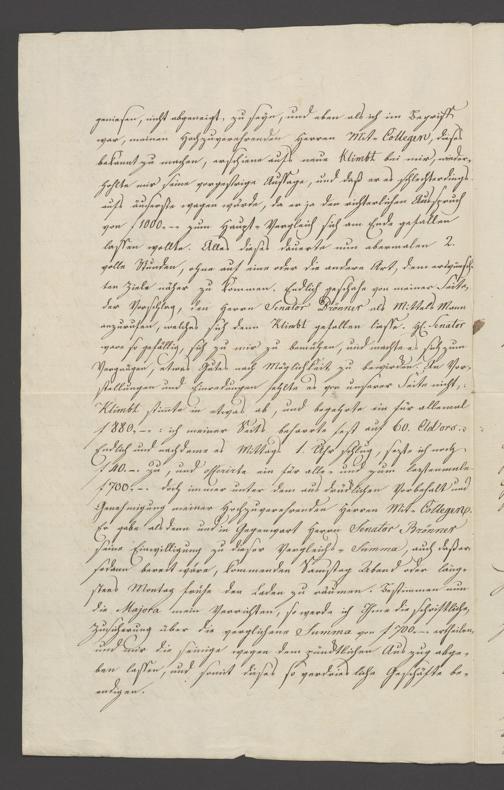 geniesen, nicht abgeneigt, zu seyn, und eben als ich im Begriff
war, meinen Hochzuverehrenden Herren Mit-Collegen, dieses
bekannt zu machen, erschiene aufs neue Klimbt bei mir, wieder-
hohlte mir seine vorgestrige Aussage, und daß er es schlechterdings
aufs äuserste wagen würde, da er ja den richterlichen Ausspruch
von f 1000.-- zum Haupt-Vergleich sich am Ende gefallen
lassen wollte. Alles dieses dauerte nun abermalen 2.
volle Stunden, ohne auf eine oder die andere Art, dem erwünsch-
ten Ziele näher zu kommen. Endlich geschahe von meiner Seite,
der Vorschlag, den Herrn Senator Brönner als Mittels Mann
anzurufen, welches sich denn Klimbt gefallen liesse. H. Senator
ware so gefällig, sich zu mir zu bemühen, und machte es sich zum
Vergnügen, etwas Gutes nach Möglichkeit zu bewirken. An Vor-
stellungen und Einredungen fehlte es von unserer Seite nicht,:
Klimbt stimte in etwas ab, und begehrte ein für allemal
f 880,-- : ich meiner Seits beharrte fest auf 60. Ld'ors:
Endlich und nachdeme es Mittags 1. Uhr schlug, sezte ich noch
f 40.-- zu, und offerirte ein für alle- und zum leztenmale
f 700.-- doch immer unter dem ausdrücklichen Vorbehalt und
Genehmigung meiner Hochzuverehrenden Herren Mit-Collegen.
Er gabe alsdenn und in Gegenwart Herrn Senator Brönner
seine Einwilligung zu dieser Vergleichs-Summa, auch daß er
sodann bereit wäre, kommenden Samstag Abend oder läng-
stens Montag frühe den Laden zu räumen. Bestimmen nun
die Majora mein Verrichten, so werde ich Ihme die schriftliche
Zusicherung über die verglichene Summa von f 700.-- ertheilen,
und mir die seinige wegen dem pünctlichen Auszug abge-
ben lassen, und somit dieses so verdriesliche Geschäfte be-
endigen.